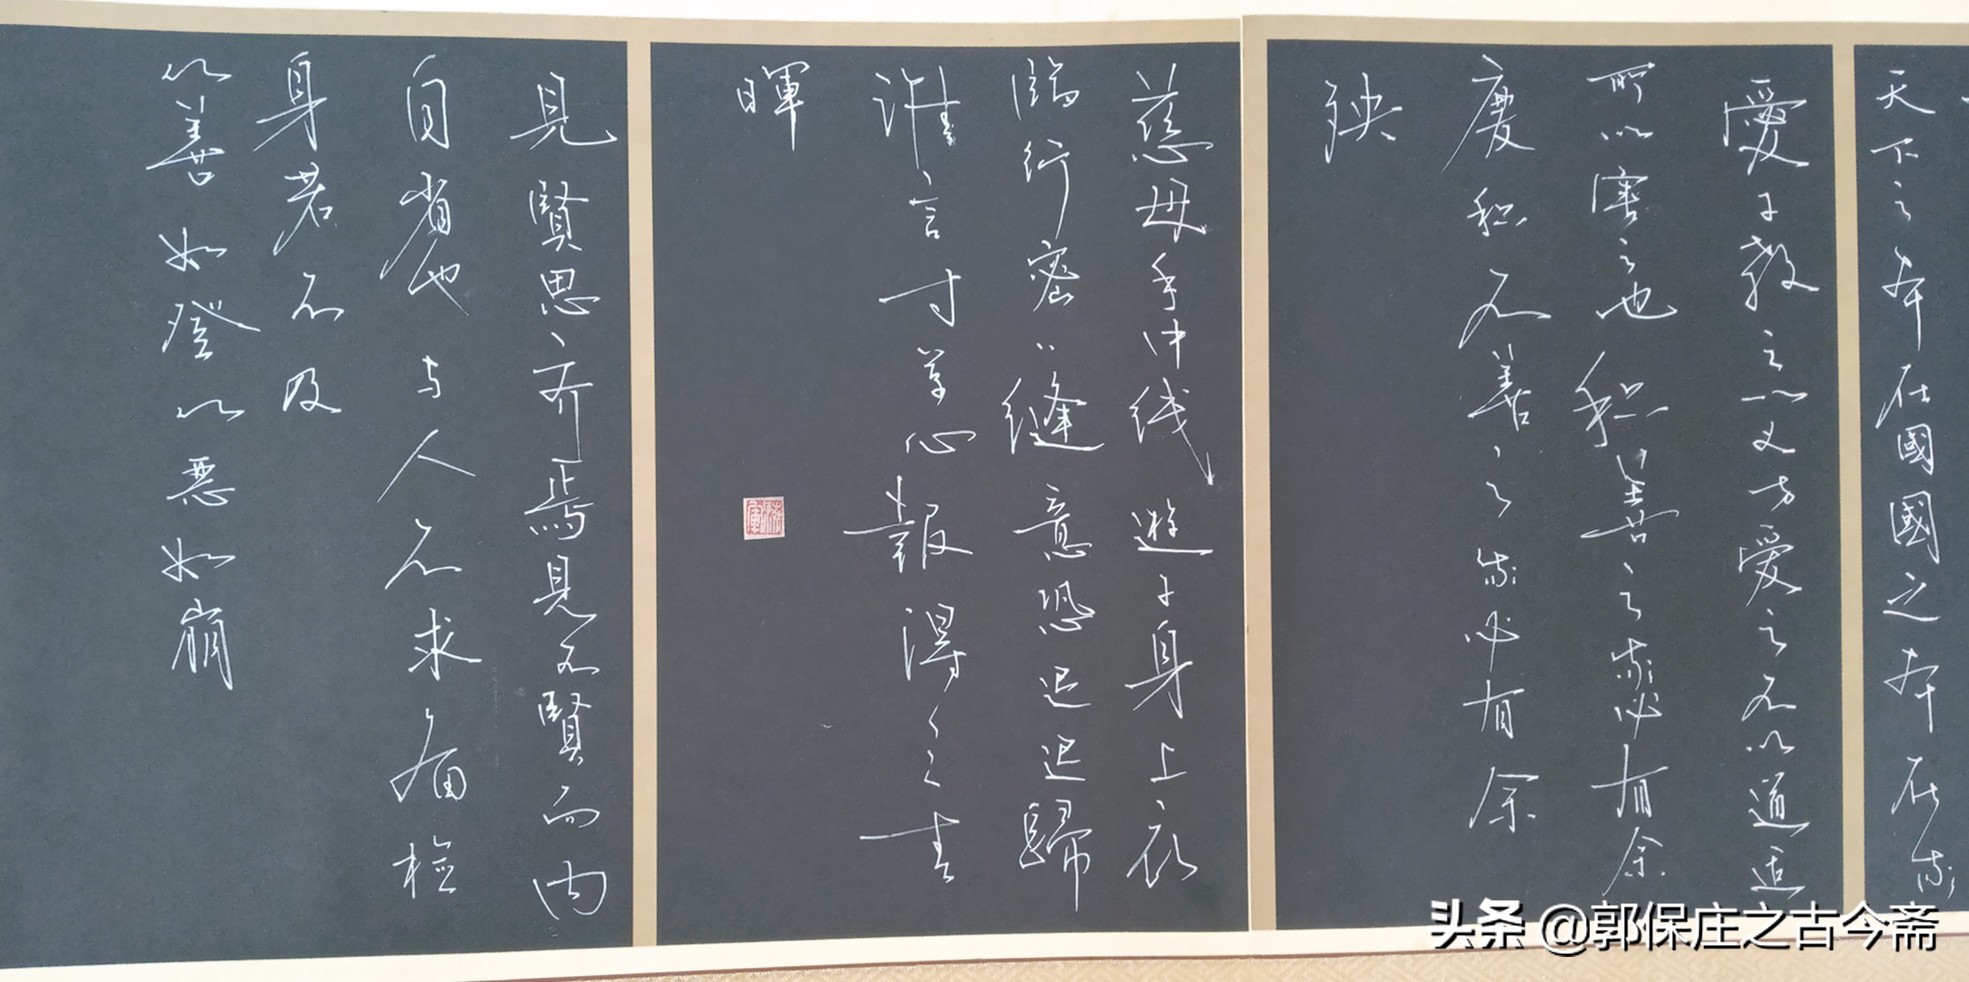 天下之本在國國之本在家
愛子教之以义方愛之不以道适
所以害之也积善之家必有余
慶积不善之家必有余
殃
慈母手中线遊子身上衣
臨行密〻缝意恐迟迟歸
谁言寸草心報得三春
暉
見賢思齐焉見不賢而内
自省也与人不求备检
身若不及
从善如登从恶如崩
头条 @郭保庄之古今斋